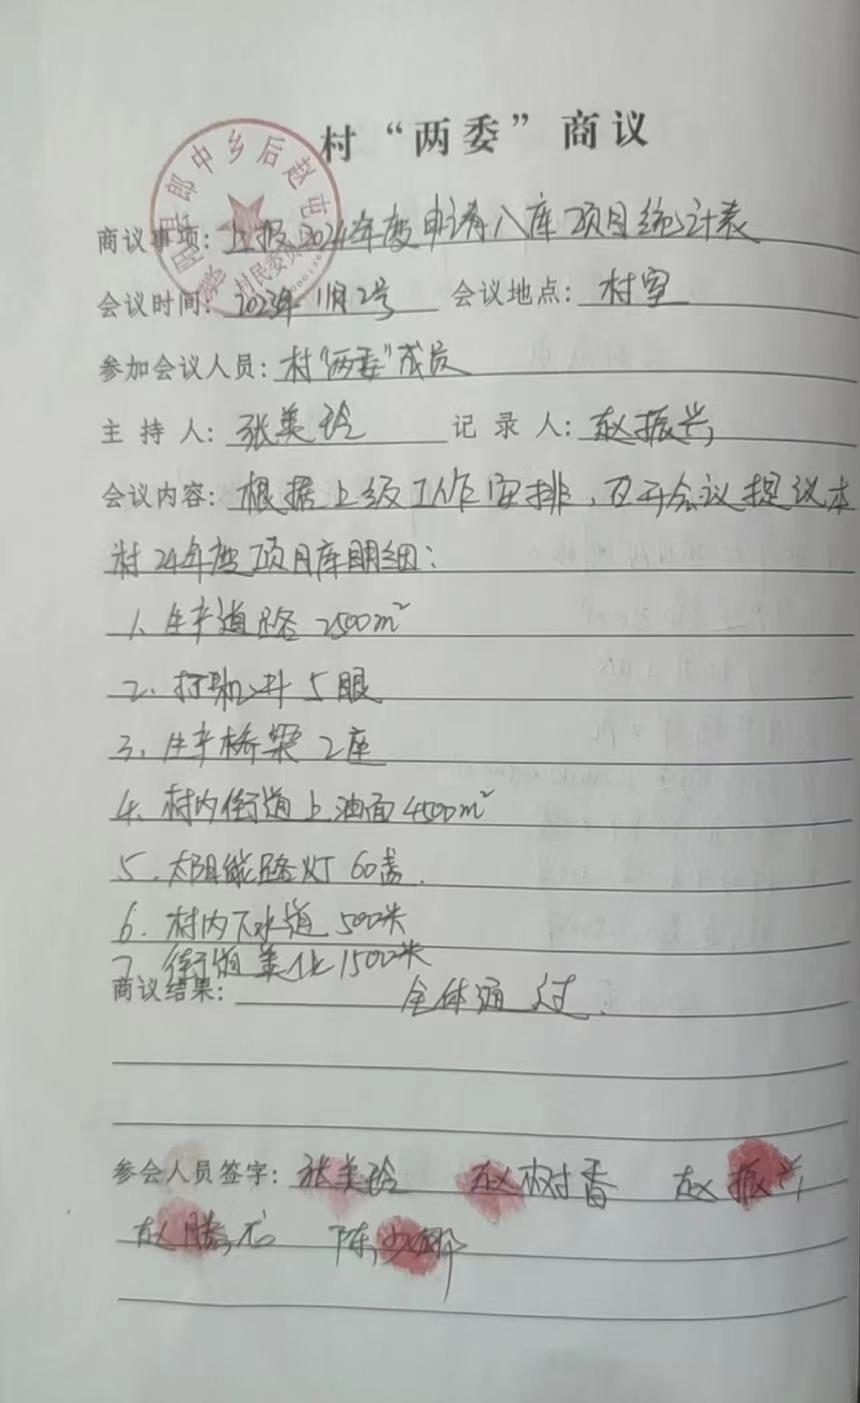 村“两委”商议
郎中乡后赵屯
村民委员
商议事项：上报2024年度申请入库项目统计表
会议时间：2023年11月2号 会议地点：村室
参加会议人员：村“两委”成员
主持人：张美玲 记录人：赵振兴
会议内容：根据上级工作安排，召开会议提议本
村24年度项目库明细：
1、生产道路2500m²
2、打机井5眼
3、生产桥梁2座
4、村内街道上油面4500m²
5、太阳能路灯60盏.
6、村内下水道500米
7、街道美化1500米
商议结果：全体通过.
参会人员签字：张美玲 赵树香 赵振兴
赵腾龙 陈少卿